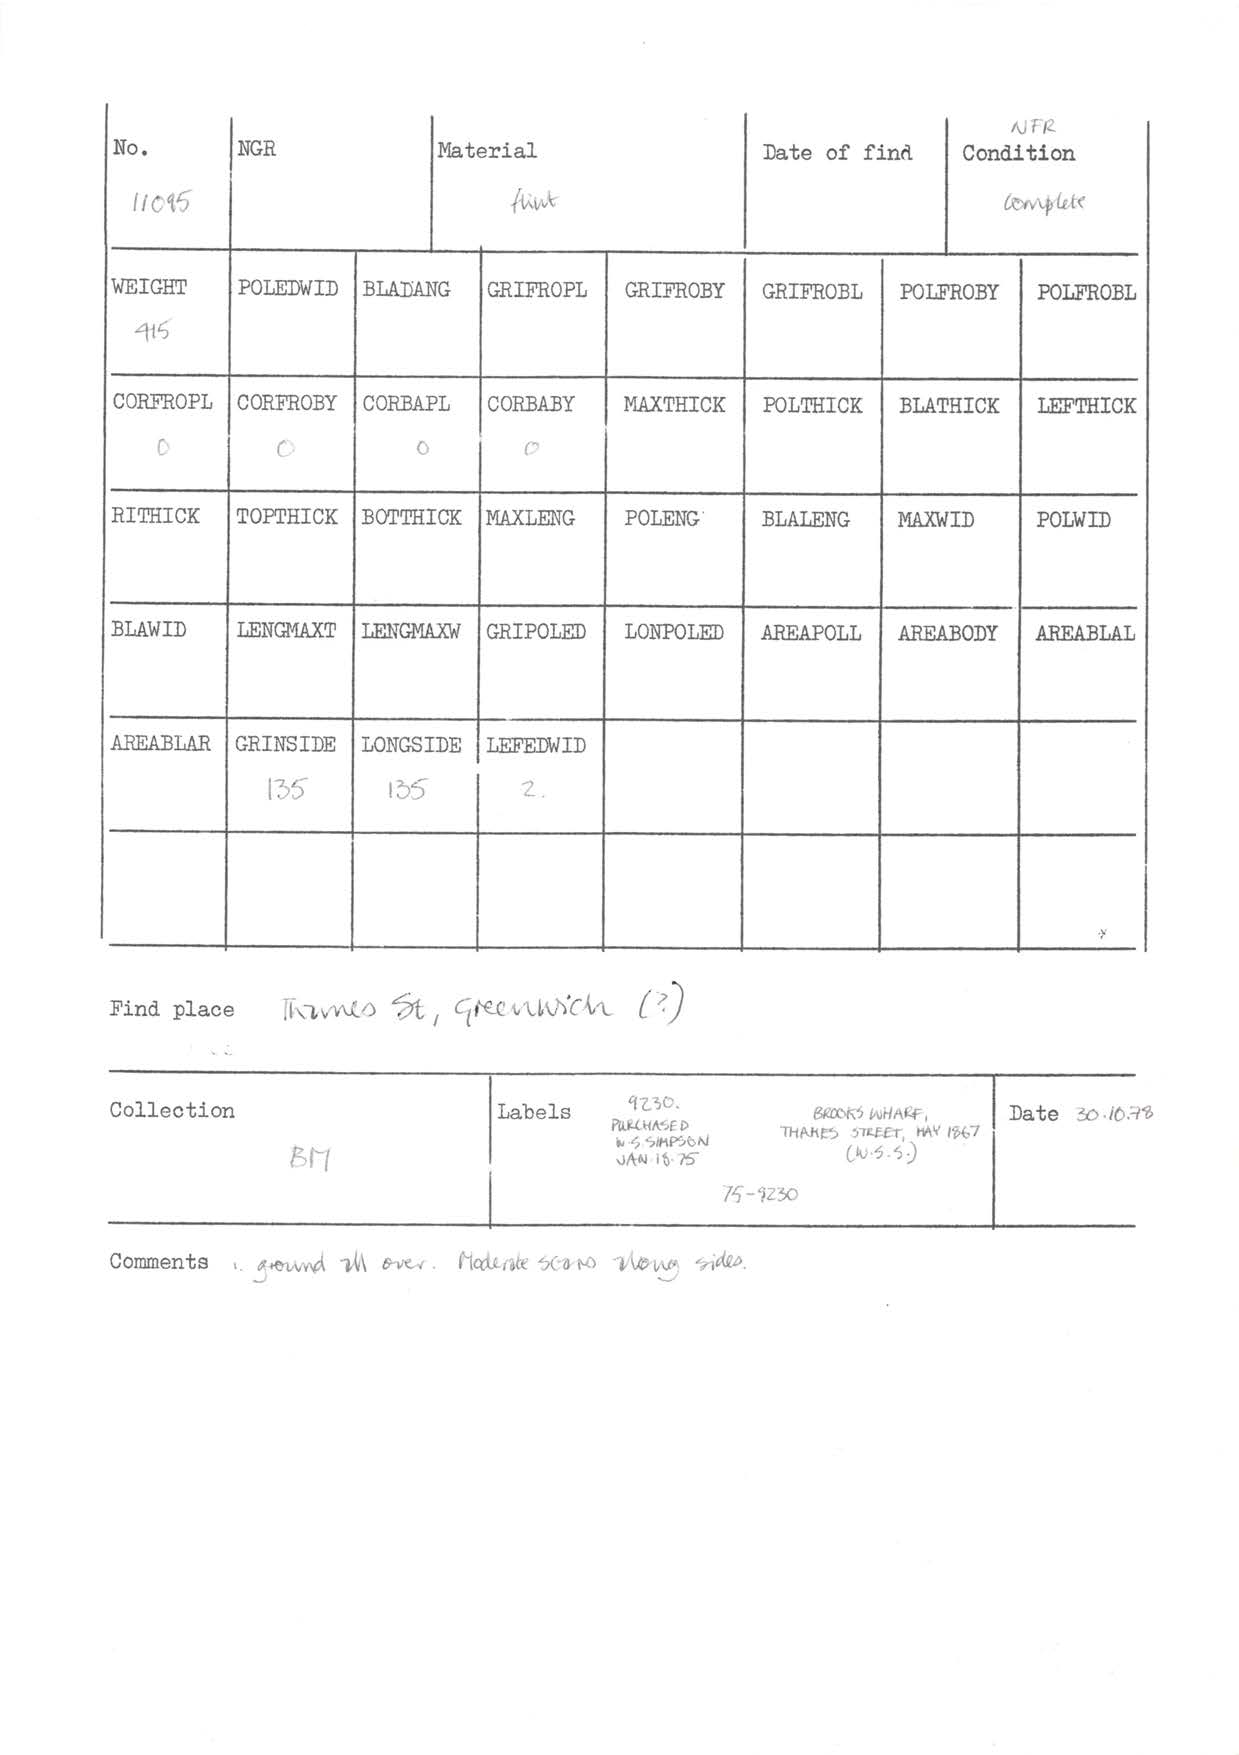 NFR
No. NGR Material Date of find Condition
11095 flint complete
WEIGHT POLEDWID BLADANG GRIFROPL GRIFROBY GRIFROBL POLFROBY POLFROBL
415
CORFROPL CORFROBY CORBAPL CORBABY MAXTHICK POLTHICK BLATHICK LEFTHICK
0 0 0 0
RITHICK TOPTHICK BOTTHICK MAXLENG POLENG BLALENG MAXWID POLWID
BLAWID LENGMAXT LENGMAXW GRIPOLED LONPOLED AREAPOLL AREABODY AREABLAL
AREABLAR GRINSIDE LONGSIDE LEFEDWID
135 135 2.
Find place Thames St, Greenwich (?)
Collection BM
Labels 9230.
PURCHASED
W.S. SIMPSON
JAN.18.75
BROOKS WHARF,
THAMES STREET, MAY 1867
(W.S.S.)
75-9230
Date 30.10.78
Comments ground all over. Moderate scars along sides.